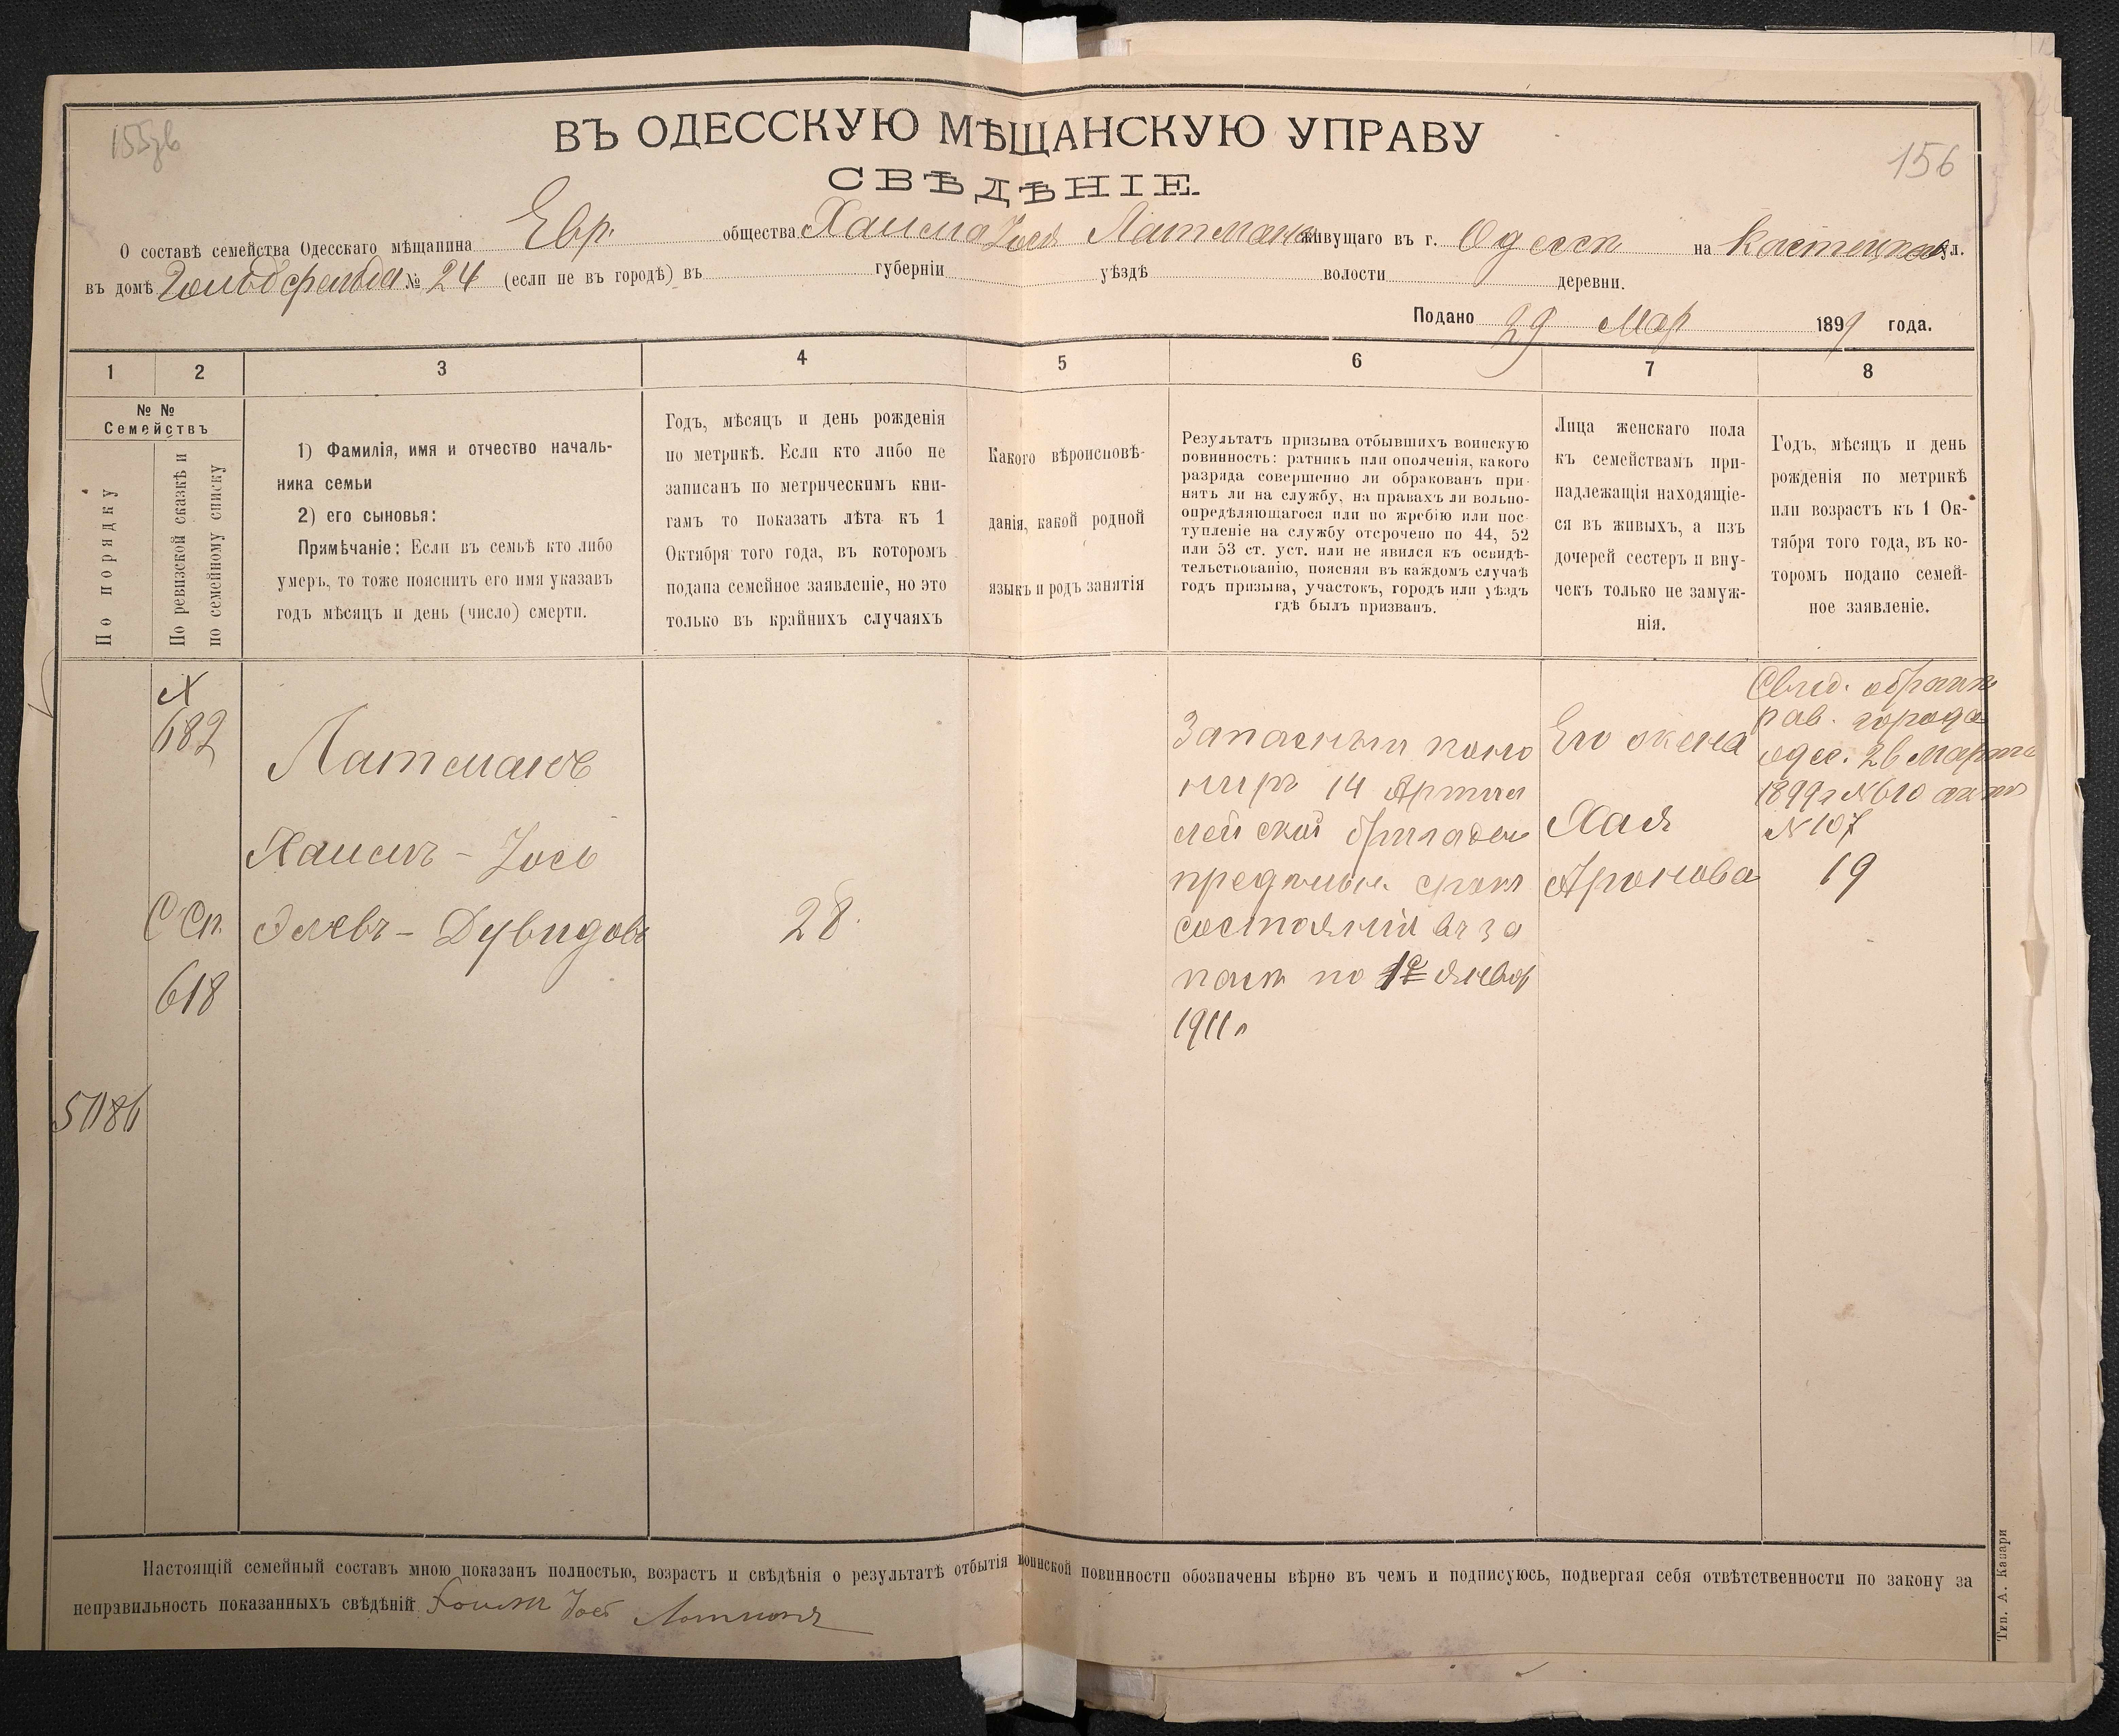 155зв
156
ВЪ ОДЕССКУЮ МѢЩАНСКУЮ УПРАВУ
СВѢДѢНІЕ.
О составѣ семейства Одесскаго мѣщанина Евр. общества Хаима Іося Латмана живущаго въ г. Одессѣ на Костецкой ул.
въ домѣ Гольдфельда № 24 (если не въ городѣ) въ губерніи уѣздѣ волости деревни.
Подано 29 Мар 1899 года.
1 2 3 4 5 6 7 8
№ №
Семействъ
По порядку
По ревизской сказкѣ и
по семейному списку
1) Фамилія, имя и отчество началь-
ника семьи
2) его сыновья:
Примѣчаніе: Если въ семьѣ кто либо
умеръ, то тоже пояснить его имя указавъ
годъ мѣсяцъ и день (число) смерти.
Годъ, мѣсяцъ и день рожденія
по метрикѣ. Если кто либо не
записанъ по метрическимъ кни-
гамъ то показать лѣта къ 1
Октября того года, въ которомъ
подана семейное заявленіе, но это
только въ крайнихъ случаяхъ
Какого вѣроисповѣ-
данія, какой родной
языкъ и родъ занятія
Результатъ призыва отбывшихъ воинскую
повинность: ратникъ или ополченія, какого
разряда совершенно ли обракованъ при-
нятъ ли на службу, на правахъ ли вольно-
опредѣляющагося или по жребію или пос-
тупленіе на службу отсрочено по 44, 52
или 53 ст. уст. или не явился къ освидѣ-
тельствованію, поясняя въ каждомъ случаѣ
годъ призыва, участокъ, городъ или уѣздъ
гдѣ былъ призванъ.
Лица женскаго пола
къ семействамъ при-
надлежащія находящіе-
ся въ живыхъ, а изъ
дочерей сестеръ и вну-
чекъ только не замуж-
нія.
Годъ, мѣсяцъ и день
рожденія по метрикѣ
или возрастъ къ 1 Ок-
тября того года, въ ко-
торомъ подано семей-
ное заявленіе.
№
682
С Сп.
618
51186
Латманъ
Хаимъ - Іось
Элевъ - Дувидовъ
28.
Запасный кано
ниръ 14 Артил
лейской бригады
предѣльн. срокъ
состоянія въ за
пасѣ по 1е Январ
1911 г
Его жена
Хая
Аронова
Свид. о бракѣ
рав. города
одес. 26 Марта
1899 г № 610 акт
№ 107
19
Настоящій семейный составъ мною показанъ полностью, возрастъ и свѣдѣнія о результатѣ отбытія воинской повинности обозначены вѣрно въ чемъ и подписуюсь, подвергая себя отвѣтственности по закону за
неправильность показанныхъ свѣдѣній Хаим Іось Латманъ
Тип. А. Капари